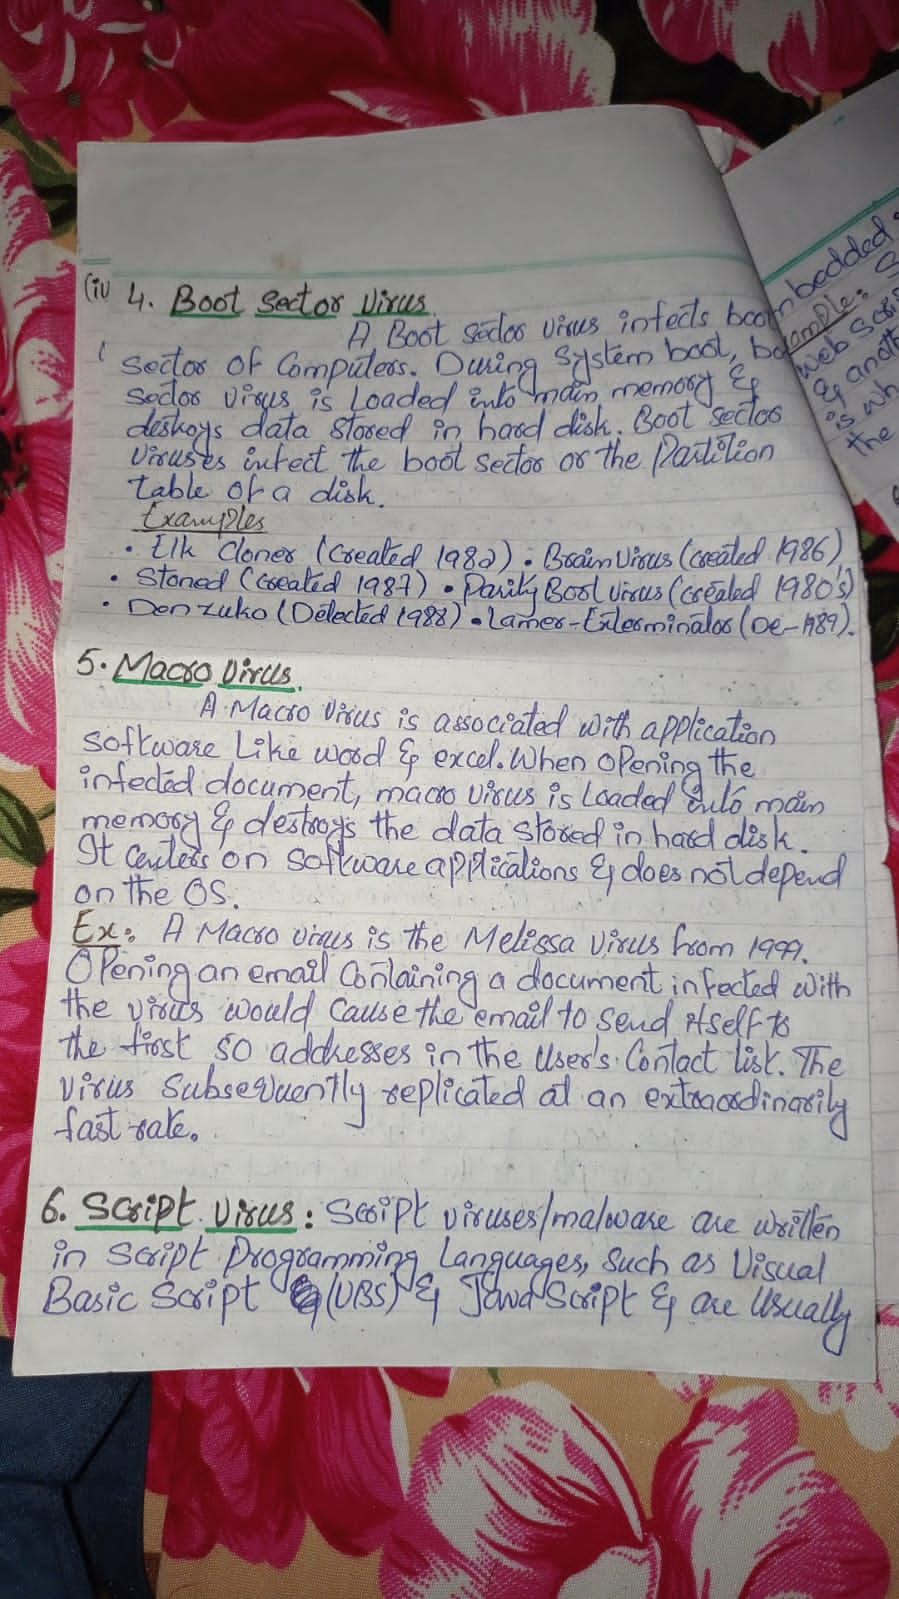 (iv
4. Boot Sector Virus
A Boot Sector virus infects boot
Sector of Computers. During System boot, bo
Sector virus is Loaded into main memory &
destroys data stored in hard disk. Boot sector
Viruses infect the boot sector or the Partition
table of a disk.
Examples
• Elk Cloner (Created 1982) • Brain Virus (created 1986)
• Stoned (Created 1987) • Parity Boot Virus (created 1980's)
• Den Zuko (Detected 1988) • Lamer-Exterminator (De-1989).
5. Macro Virus.
A Macro Virus is associated with application
Software Like word & excel. When Opening the
infected document, macro virus is Loaded into main
memory & destroys the data stored in hard disk.
It Centers on Software applications & does not depend
on the OS.
Ex: A Macro virus is the Melissa Virus from 1999.
Opening an email Containing a document infected with
the virus would Cause the email to send itself to
the first 50 addresses in the User's Contact list. The
virus Subsequently replicated at an extraordinarily
fast rate.
6. Script Virus: Script viruses/malware are written
in Script Programming Languages, Such as Visual
Basic Script (VBS) & JavaScript & are Usually
mbedded
ample: S
web Scri
& anoth
is wh
the